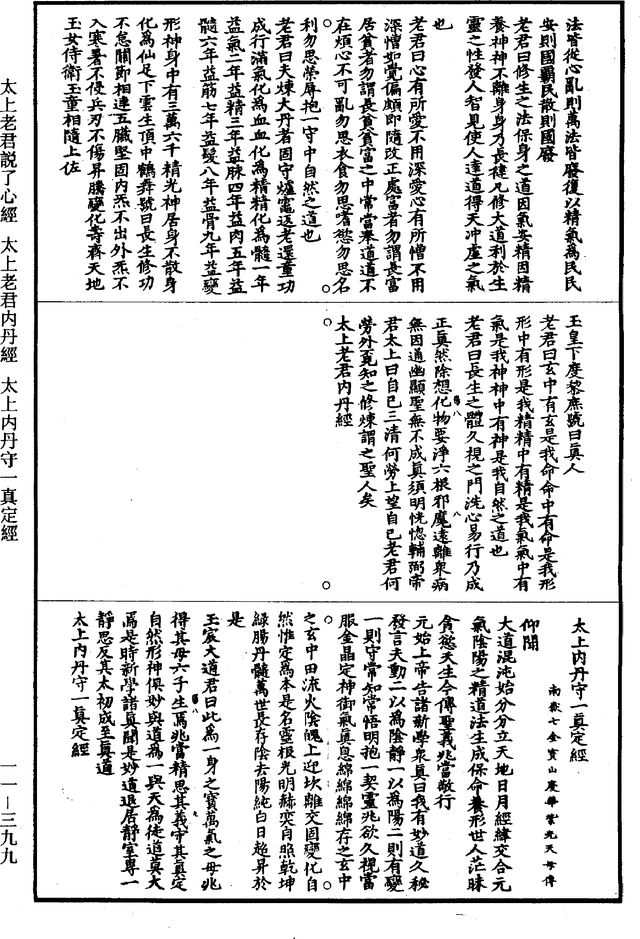 法皆從心亂則萬法皆廢復以精氣為民民
安則國霸民散則國廢
老君曰修生之法保身之道因氣安精因精
養神神不離身身乃長健凡修大道利於生
靈之性發人智見使人達道得天沖虛之氣
也
老君曰心有所愛不用深愛心有所憎不用
深憎如覺偏頗即隨改正處富者勿謂長富
居貧者勿謂長貧貧富之中常當奉道道不
在煩心不可亂勿思衣食勿思嗜慾勿思名
利勿思榮辱抱一守中自然之道也
老君曰夫煉大丹者固守爐竈返老還童功
成行滿氣化為血血化為精精化為髓一年
益氣二年益精三年益脉四年益肉五年益
髓六年益筋七年益髮八年益骨九年益變
形神身中有三萬六千精光神居身不散身
化為仙足下雲生頂中鶴舞號曰長生修功
不怠關節相連五臟堅固內炁不出外炁不
入寒暑不侵兵刃不傷昇騰變化壽齊天地
玉女侍衛玉童相隨上佐
玉皇下度黎庶號曰真人
老君曰玄中有玄是我命命中有命是我形
形中有形是我精精中有精是我氣氣中有
氣是我神神中有神是我自然之道也
老君曰長生之體久視之門洗心易行乃成
正真然除想化物要淨六根邪魔遠離衆病
無因通幽顯聖無不成真須明恍惚輔弼帝
君太上曰自己三清何勞上望自已老君何
勞外覓知之修煉謂之聖人矣
太上老君內丹經
太上內丹守一真定經
南嶽七金寶山慶華紫光天母傳
仰聞
大道混沌始分分立天地日月經緯交合元
氣陰陽之精道法生成保命養形世人茫昧
貪慾夭生今傳聖義兆當敬行
元始上帝告諸新學衆真曰我有妙道久秘
發言天動二以為陰靜一以為陽二則有變
一則守常知常悟明抱一契靈兆欲久視當
服金晶定神御氣真息綿綿綿綿存之玄中
之玄中田流火陰魄上迎坎離交固變化自
然惟定為本是名靈極光明赫奕自照乾坤
綠腸丹髓萬世長存陰去陽純白日超昇於
是
玉宸大道君曰此為一身之寶萬氣之母兆
得其母六子生焉兆當精思其義守其真定
自然形神俱妙與道為一與天為徒道莫大
焉是時新學諸真聞是妙道退居靜室專一
靜思反其太初成至真道
太上內丹守一真定經
太上老君説了心經　太上老君內丹經　太上內丹守一真定經
一一－三九九